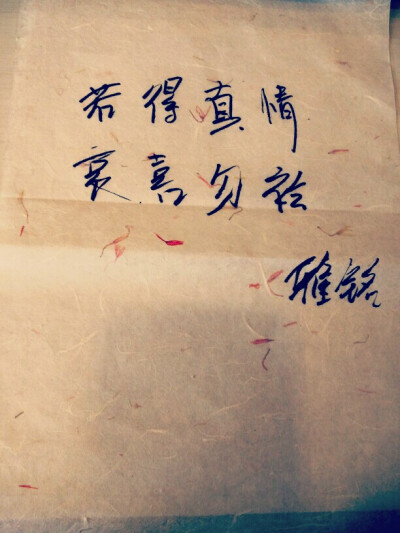 若得真情
哀喜勿矜
雅铭